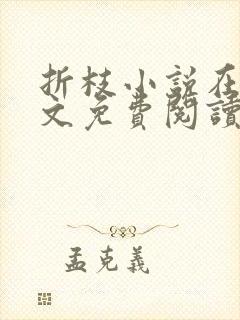 折枝小説在
文免費閱讀
孟克義